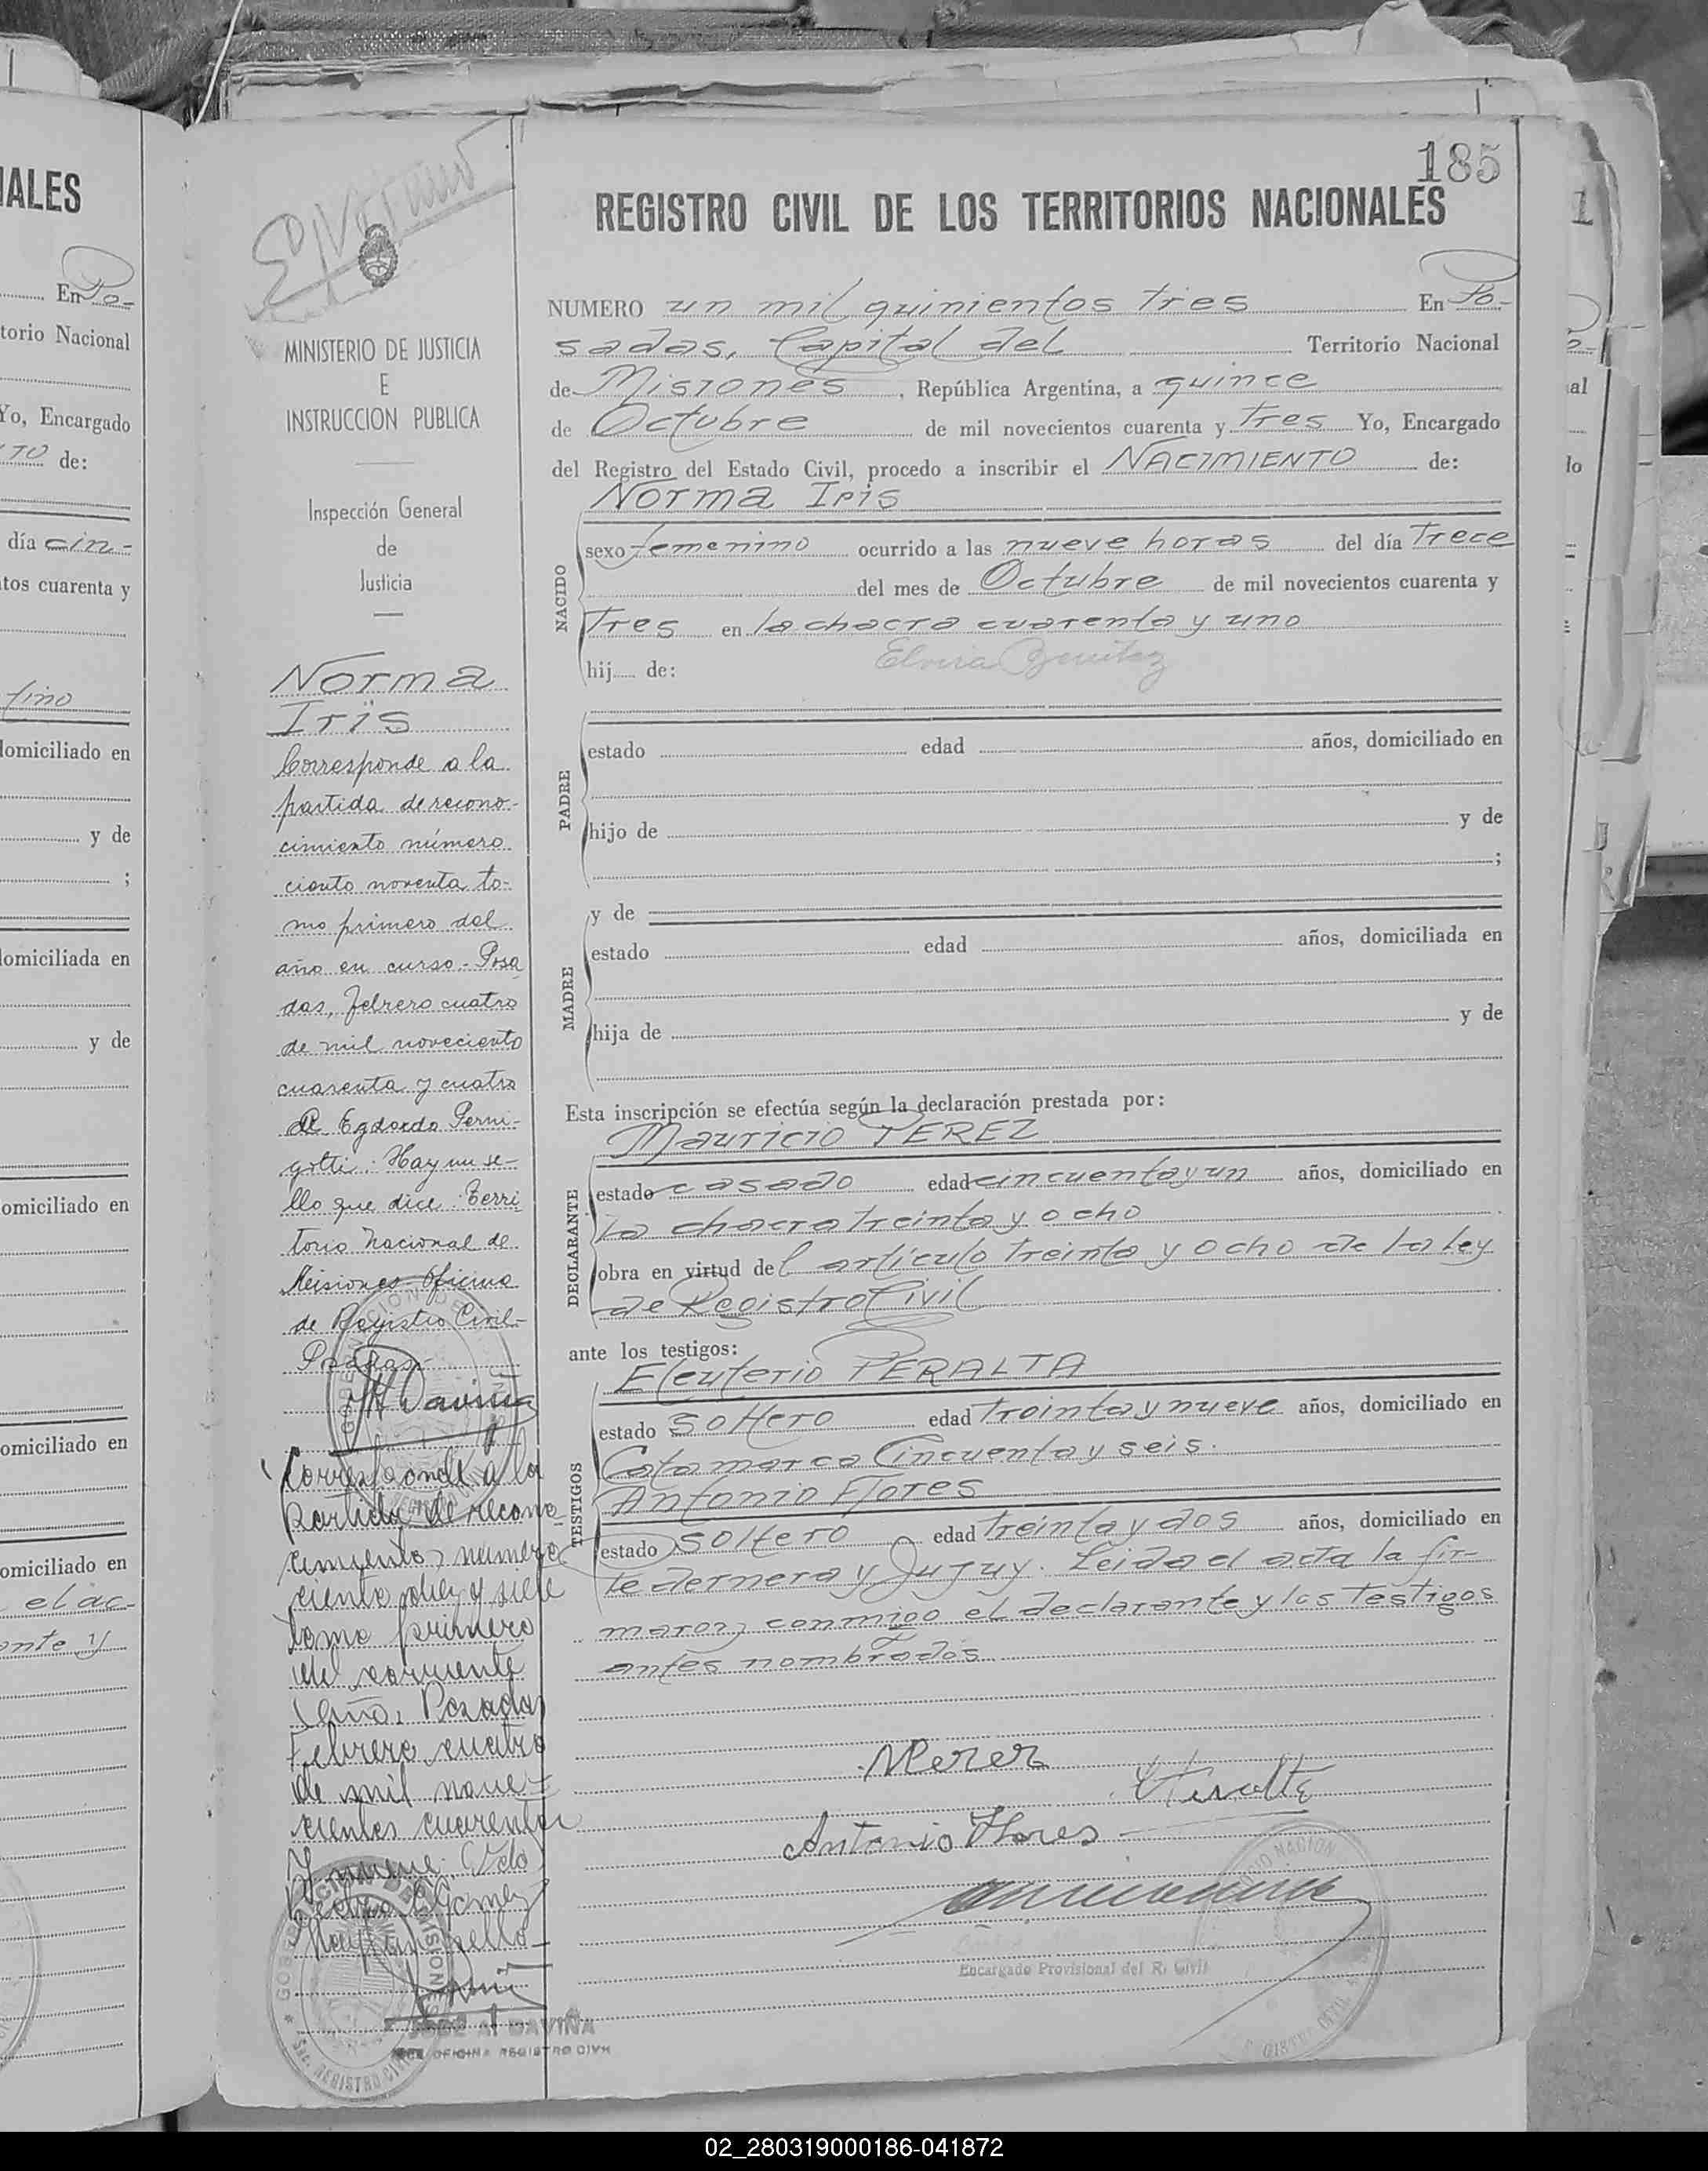 IALES
En Po-
torio Nacional
Yo, Encargado
TO de:
día cin-
tos cuarenta y
tino
domiciliado en
y de
;
domiciliada en
y de
omiciliado en
omiciliado en
omiciliado en
el ac-
ante y
MINISTERIO DE JUSTICIA
E
INSTRUCCION PUBLICA
Inspección General
de
Justicia
Norma
Iris
Corresponde a la
partida de recono-
cimiento número
ciento noventa to-
mo primero del
año en curso - Posa
das, Febrero cuatro
de mil noveciento
cuarenta y cuatro
Egdardo Perni-
gotti. Hay un se-
llo que dice: Terri
torio Nacional de
Misiones - Oficina
de Registro Civil-
Posadas-
Corresponde a la
Partida de recono
cimiento número
ciento diez y siete
tomo primero
del corriente
Año, Posadas
Febrero cuatro
de mil nove-
cientos cuarenta
Pedro Gomez
Hay un sello
JOSE A. DAVIÑA
JEFE OFICINA REGISTRO CIVIL
185
REGISTRO CIVIL DE LOS TERRITORIOS NACIONALES
NUMERO un mil quinientos tres En Po-
sadas, Capital del Territorio Nacional
de Misiones, República Argentina, a quince
de Octubre de mil novecientos cuarenta y tres Yo, Encargado
del Registro del Estado Civil, procedo a inscribir el NACIMIENTO de:
NACIDO
Norma Iris
sexo femenino ocurrido a las nueve horas del día Trece
del mes de Octubre de mil novecientos cuarenta y
Tres en la chacra cuarenta y uno
hij de: Elvira Benitez
PADRE
estado edad años, domiciliado en
hijo de y de
;
MADRE
y de
estado edad años, domiciliada en
hija de y de
Esta inscripción se efectúa según la declaración prestada por:
DECLARANTE
Mauricio PEREZ
estado casado edad cincuenta y un años, domiciliado en
la chacra treinta y ocho
obra en virtud del artículo treinta y ocho de la ley
de Registro Civil
ante los testigos:
TESTIGOS
Eleuterio PERALTA
estado soltero edad treinta y nueve años, domiciliado en
Catamarca Cincuenta y seis.
Antonio Flores
estado soltero edad treinta y dos años, domiciliado en
Tedernera y Jujuy. Leida el acta la fir-
maron conmigo el declarante y los testigos
antes nombrados
MPerez
Antonio Flores
Encargado Provisional del R. Civil
02_280319000186-041872